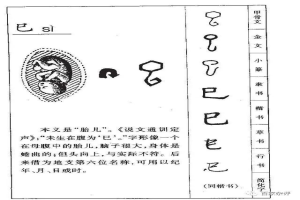 巳 sì
本义是“胎儿”。《说文通训定
声》：“未生在腹为‘巳’。”字形像一个
在母腹中的胎儿，脑子很大，身体是
蜷曲的，但头向上，与实际不符。后
来借为地支第六位名称，可用以纪
年、月、日或时。
甲骨文
金文
小篆
隶书
楷书
草书
行书
简化字
（同楷书）